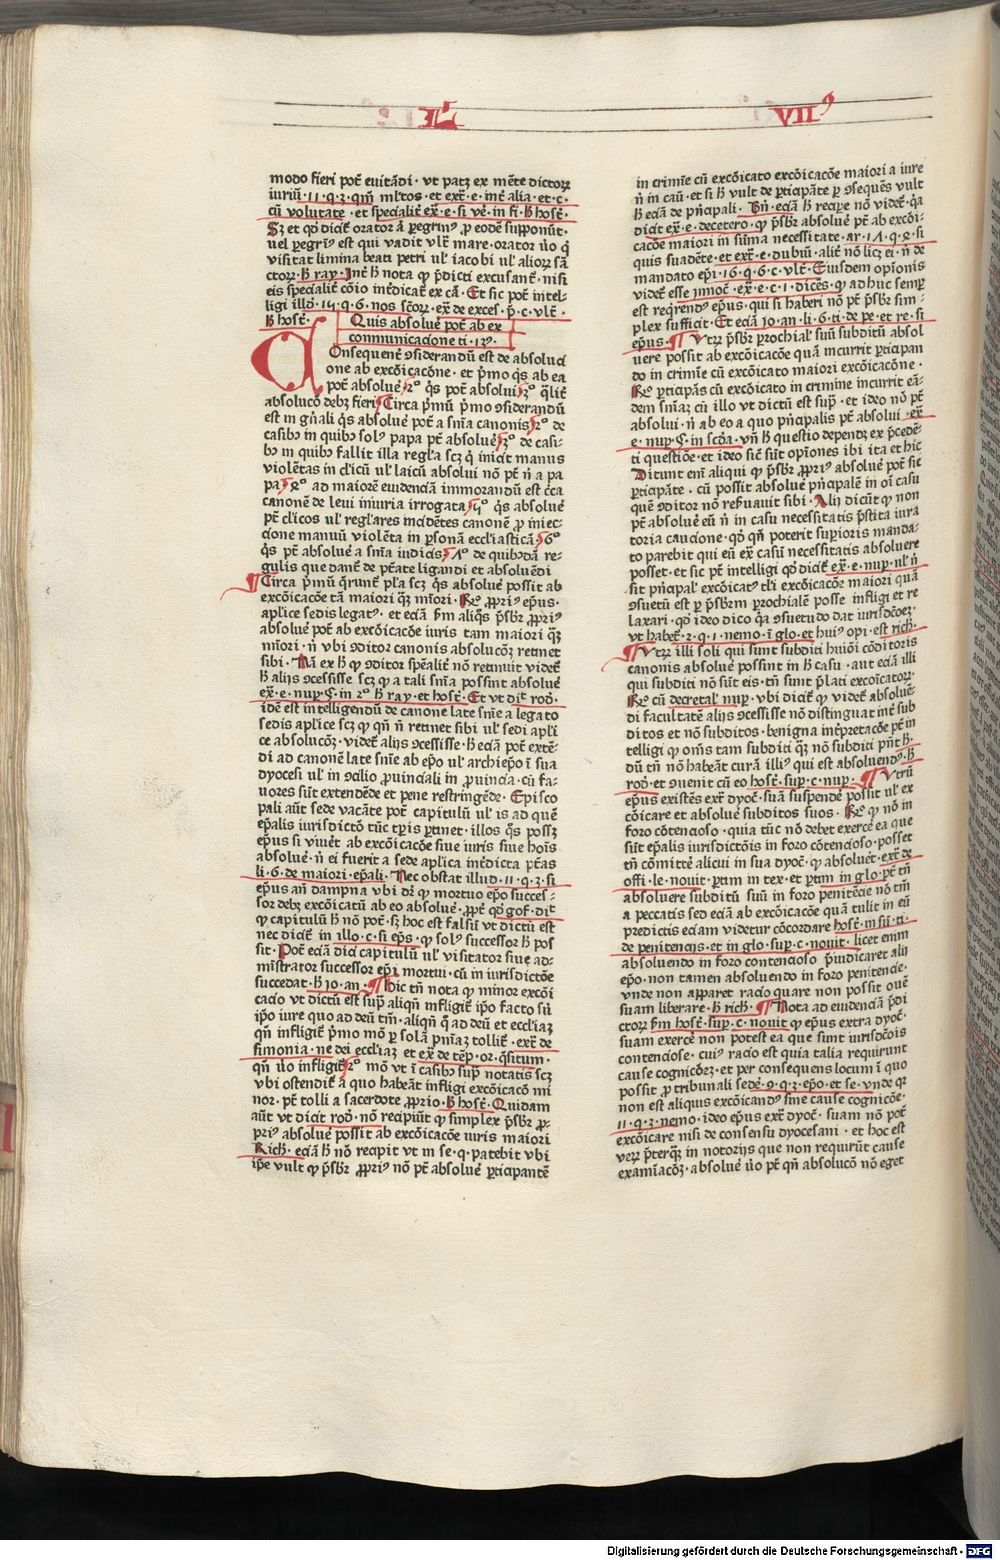 L VII
modo fieri pot̄ euitādi · vt patꝫ ex mēte dictoꝝ
iuriū · 11 · q · 3 · qm̄ ml̄tos · et extᵉ · e · inᵗ alia · et · c ·
cū volūtate · et specialit̄ ex̄ · e · si vᵉ · in fi · ꝧ hosᵗ ·
Sꝫ et qō dicit̄ orator ā ꝑegrinꝰ ꝓ eodē suppōnūt ·
uel ꝑegrīꝰ est qui vadit vlt̄ mare · orator ūo q̄
visitat limina beati petri ul' iacobi ul' alioꝝ sā
ctoꝝ · ꝧ ray · Inᵗ ꝧ nota ꝙ p̄dicti excusant̄ · nisi
eis specialit̄ cōio inᵗdicat̄ ex cā · Et sic pot̄ intel-
ligi illō · 14 · q · 6 · nos sc̄oꝝ · ex̄ · de exces · p̄ · c · vlt̄ ·
ꝧ hosᵗ ·
Quis absoluē pot̄ ab ex
communicacione ti · 13º ·
COnsequent̄ ꝯsiderandū est de absoluci
one ab excōicacōne · et p̄mo q̄s ab ea
pot̄ absoluē · 2º q̄s pot̄ absolui · 3º q̄lit̄
absolucō debꝫ fieri Circa p̄mū p̄mo ꝯsiderandū
est in gn̄ali q̄s absoluē pot̄ a sn̄ia canonis · 2º de
casibꝫ in quibꝫ solꝰ papa pt̄ absoluē · 3º de casi-
bꝫ in quibꝫ fallit illa regl'a scꝫ q̄ inicit manus
violētas in cl'icū ul' laicū absolui nō pt̄ n̄ a pa
pa · 4º ad maiorē euidenciā immorandū est c̄ca
canonē de leui iniuria irrogata · 5º q̄s absoluē
pt̄ cl'icos ul' regl'ares incidētes canonē ꝓ iniec-
cione manuū violēta in ꝑsonā eccl'iasticā · 6º
q̄s pt̄ absoluē a sn̄ia iudicis · 7º de quibꝫdā re-
gulis que dant̄ de ptᵃte ligandi et absoluēdi
¶ Circa p̄mū q̄runt̄ pl'a scꝫ q̄s absoluē possit ab
excōicacōe tā maiori q̄ꝫ mīori · Rº ꝓpriꝰ ep̄us ·
apl'ice sedis legatꝰ · et eciā ẜm aliq̄s p̄sbr̄ ꝓpriꝰ
absoluē pot̄ ab excōicacōe iuris tam maiori q̄ꝫ
mīori · n̄ vbi ꝯditor canonis absolucōꝫ retinet
sibi · Nā ex ꝧ ꝙ ꝯditor spēalit̄ nō retinuit videt̄
ꝧ alijs ꝯcessisse scꝫ ꝙ a tali sn̄ia possint absoluē
ex̄ · e · nuꝑ · C · in 2º ꝧ ray · et hosᵗ · Et vt dīt rod̄ ·
idē est intelligendū de canone late sn̄ie a legato
sedis apl'ice scꝫ ꝙ qn̄ n̄ retinet sibi ul' sedi apl'i
ce absolucōꝫ · videt̄ alijs ꝯcessisse · ꝧ eciā pot̄ extē-
di ad canonē late sn̄ie ab ep̄o ul' archiep̄o ī sua
dyocesi ul' in ꝯcilio ꝓuinciali in ꝓuincia · cū fa-
uores sīnt extendēde et pene restringēde · Episco
pali aūt sede vacāte pot̄ capitulū ul' is ad quē
ep̄alis iurisdictō tūc tꝑis ꝑtinet · illos q̄s possꝫ
ep̄us si viuēt ab excōicacōe siue iuris siue hoīs
absoluē · n̄ ei fuerit a sede apl'ica inᵗdicta ptᵃs
li · 6 · de maiori · ep̄ali · Nec obstat illud · 11 · q · 3 · si
ep̄us an̄ dampna vbi dr̄ ꝙ mortuo ep̄o succes-
sor debꝫ excōicatū ab eo absoluē · ꝓpt̄ qō gof · dīt
ꝙ capitulū ꝧ nō pot̄ · sꝫ hoc est falsū vt dictū est
nec dicit̄ in illo · c · si ep̄s · ꝙ solꝰ successor ꝧ pos
sit · Pot̄ eciā dici capitulū ul' visitator siue ad-
mīstrator successor ep̄i mortui · cū in iurisdictōe
succedat · ꝧ Jo · an · ¶ Hic tn̄ nota ꝙ minor excōi
cacio vt dictū est supᵃ aliqn̄ infligit̄ ip̄o facto siī
ip̄o iure quo ad deū tm̄ · aliqn̄ q̄ ad deū et eccl'iaꝫ
qn̄ infligit̄ p̄mo mō ꝑ solā pniaꝫ tollit̄ · extᵉ de
simonia · ne dei eccl'iaꝫ et ex̄ de tēp · or · q̄situm ·
qn̄ ūo infligit̄ 2º mō vt ī casibꝫ supᵃ notatis scꝫ
vbi ostendit̄ a quo habeāt infligi excōicacō mi
nor · pt̄ tolli a sacerdote ꝓprio · ꝧ hosᵗ · Quidam
aūt vt dicit rod̄ · nō recipiūt ꝙ simplex p̄sbr̄ ꝓ-
priꝰ absoluē possit ab excōicacōe iuris maiori
Rich · eciā ꝧ nō recipit vt in se · q · patebit vbi
ip̄e vult ꝙ p̄sbr̄ ꝓpriꝰ nō pt̄ absoluē ꝑticipantē
in crimīe cū excōicato excōicacōe maiori a iure
n̄ in caū · et si ꝧ vult de ꝑticipāte ꝑ ꝯsequēs vult
ꝧ eciā de p̄ncipali · Bn̄ · eciā ꝧ recipᵉ nō videt̄ · q̄a
dicit ex̄ · e · decetero · ꝙ p̄sbr̄ absoluē pt̄ ab excōi-
cacōe maiori in sūma necessitate · ar · 17 · q · 4 · si
quis suadēte · et extᵉ · e · dubiū · alit̄ nō licꝫ ei · n̄ de
mandato ep̄i · 16 · q · 6 · c · vlt̄ · Eiusdem opīonis
videt̄ esse īnnoc̄ · ex̄ · e · c · 1 · dicēs · ꝙ ad huc semꝑ
est reqrendꝰ ep̄us · qui si haberi nō pt̄ p̄sbr̄ sim-
plex sufficit · Et eciā Jo · an · li · 6 · ti · de pe · et re · si
ep̄us · ¶ Vtꝝ p̄sbr̄ ꝑrochial' suū subditū absol
uere possit ab excōicacōe quā incurrit ꝑticipan
do in crimīe cū excōicato maiori excōicacōne ·
Rº ꝑticipās cū excōicato in crimine incurrit eā-
dem sn̄iaꝫ cū illo vt dictū est supᵃ · et ideo nō pt̄
absolui · n̄ ab eo a quo p̄ncipalis pt̄ absolui · ex̄
e · nuꝑ · C · in scd̄a · vn̄ ꝧ questio dependꝫ ex p̄cedē-
ti questiōe · et ideo sic̄ sūt opīones ibi ita et hic
Dicunt enī aliqui ꝙ p̄sbr̄ ꝓpriꝰ absoluē pot̄ sic̄
ꝑticipātē · cū possit absoluē p̄ncipalē in oī casu
quē ꝯditor nō reꝧuauit sibi · Alij dicūt ꝙ non
pt̄ absoluē eū n̄ in casu necessitatis p̄stita iura
toria caucione · qō qn̄ poterit suꝑioris manda-
to parebit qui eū ex casū necessitatis absoluere
posset · et sic pt̄ intelligi qō dicit̄ ex̄ · e · nuꝑ · ul' n̄
sit p̄ncipal' excōicatꝰ tl'i excōicacōe maiori quā
ꝯsuetū est ꝑ p̄sbrm ꝑrochialē posse infligi et re
laxari · qō ideo dico q̄a ꝯsuetudo dat iurisdc̄ōeꝫ ·
vt habet̄ · 2 · q · 1 · nemo · ī glo · et huiꝰ opī · est rich ·
¶ Vtꝝ illi soli qui sunt subditi huiōi cōditoris
canonis absoluē possint in ꝧ casu · aut eciā illi
qui subditi nō sūt eis · tn̄ sunt p̄lati excoīcatoꝝ ·
Rº cū decretal' nuꝑ · vbi dicit̄ ꝙ videt̄ absoluē-
di facultatē alijs ꝯcessisse nō distinguat intᵉ sub
ditos et nō subditos · benigna inᵗpretacōe pt̄ in
telligi ꝙ oīns tam subditi q̄ꝫ nō subditi pn̄t ꝧ ·
dū tn̄ nō habeāt curā illiꝰ qui est absoluendꝰ · ꝧ
rod̄ · et ꝯuenit cū eo hosᵗ · sup · c · nuꝑ · ¶ Vtrū
ep̄us existēs extᵃ dyoc̄ · suā suspendē possit ul' ex
cōicare et absoluē subditos suos · Rº ꝙ nō in
foro cōtencioso · quia tūc nō debet exercē ea que
sūt ep̄alis iurisdictōis in foro cōtencioso · posset
tn̄ cōmittē alicui in sua dyoc̄ · ꝙ absoluēt · extᵉ de
offi · le · nouit · ꝑtim in tex · et ꝑtim in glo · pt̄ tn̄
absoluere subditū suū in foro penitēcie nō tm̄
a peccatis sed eciā ab excōicacōe quā tulit in eū
predictis eciam videtur cōcordare hosᵗ · in sū · ti ·
de penitencijs · et in glo · sup · c · nouit · licet enim
absoluendo in foro contencioso p̄iudicaret alij
ep̄o · non tamen absoluendo in foro penitencie ·
vnde non apparet racio quare non possit oue
suam liberare · ꝧ rich · ¶ Nota ad euidenciā p̄di
ctoꝝ ẜm hosᵗ · sup · c · nouit ꝙ ep̄us extra dyoc̄ ·
suam exercē non potest ea que sunt iurisdc̄ōis
contenciose · cuiꝰ racio est quia talia requirunt
cause cognicōeꝫ · et per consequens locum ī quo
possit ꝓ tribunali sedē · 9 · q · 2 · ep̄o · et se · vnde qꝛ
non est aliquis excōicandꝰ sine cause cognicōe ·
11 · q · 3 · nemo · ideo ep̄us extᵃ dyoc̄ · suam nō pot̄
excōicare nisi de consensu dyocesani · et hoc est
veꝝ p̄terq̄ꝫ in notorijs que non requirūt cause
examīacōꝫ · absoluē ūo pt̄ qn̄ absolucō nō eget
Digitalisierung gefördert durch die Deutsche Forschungsgemeinschaft - DFG